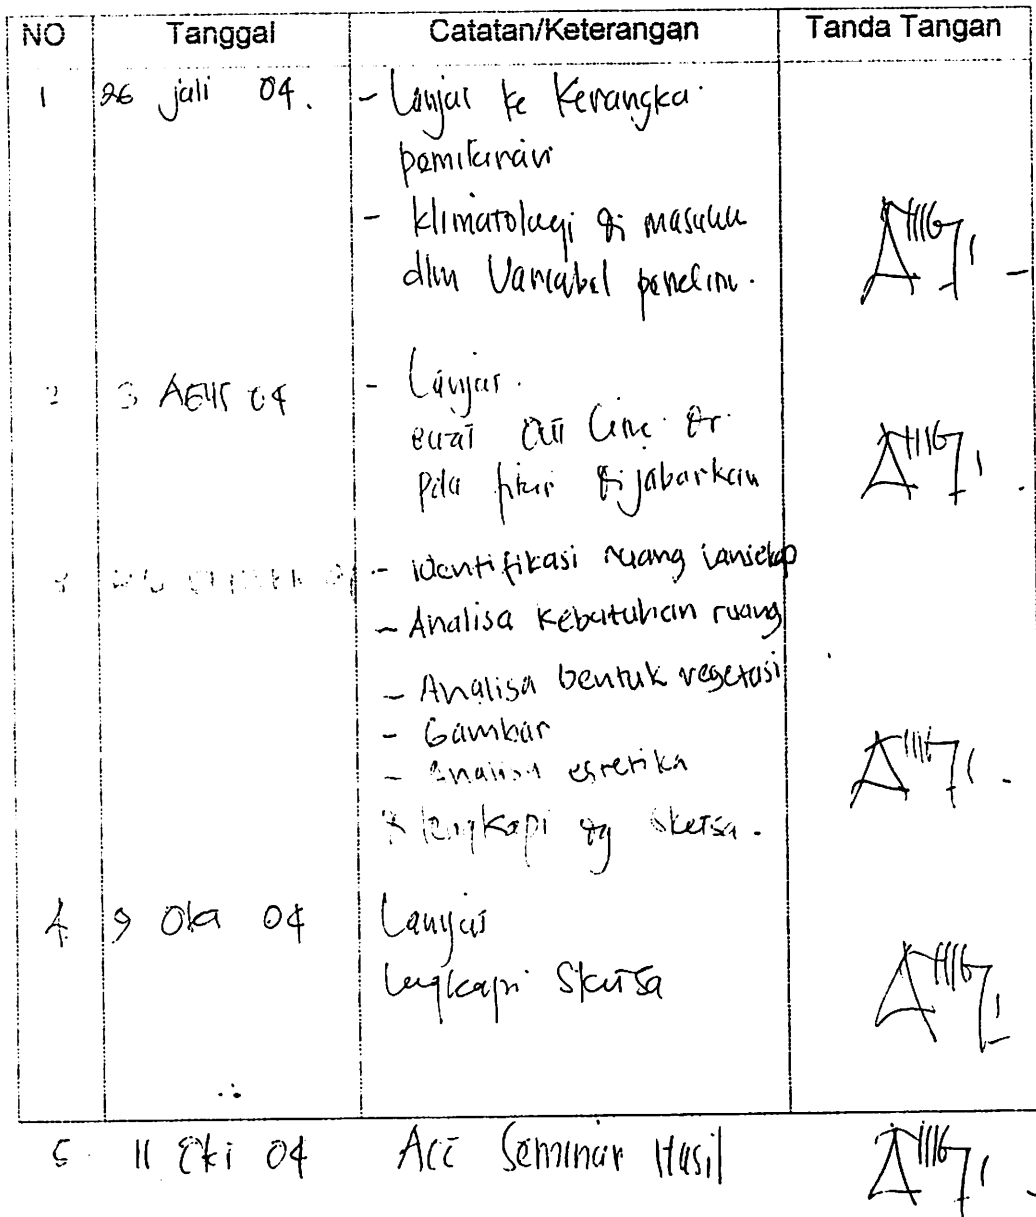 NO Tanggal Catatan/Keterangan Tanda Tangan
1 26 juli 04. - Lanjut ke Kerangka
pemikiran
- klimatologi di masukk
dlm Variabel penelitn.
2 3 Agus 04 - Lanjut.
buat Out Line dr
pola fikir dijabarkan
3 - identifikasi ruang lansekap
- Analisa kebutuhan ruang
- Analisa bentuk vegetasi
- Gambar
- Analisa estetika
lengkapi dg sketsa.
4 9 Okt 04 Lanjut
lengkapi Sketsa
5 11 Okt 04 Acc Seminar Hasil